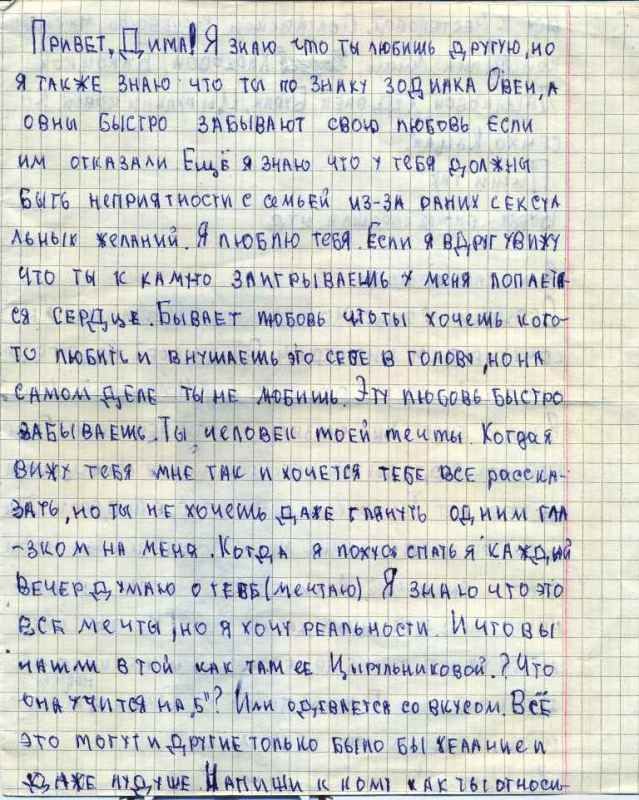 Привет, Дима! Я знаю что ты любишь другую, но
я также знаю что ты по знаку зодиака Овен, а
овны быстро забывают свою любовь если
им отказали Ещё я знаю что у тебя должны
быть неприятности с семьей из-за раних сексуа
льных желаний. Я люблю тебя. Если я вдруг увижу
что ты к камуто заигрываешь у меня лопает-
ся сердце. Бывает любовь что ты хочешь кого-
то любить и внушаешь это себе в голову, но на
самом деле ты не любишь. Эту любовь быстро
забываешь. Ты человек моей мечты. Когда я
вижу тебя мне так и хочется тебе все расска-
зать, но ты не хочешь даже глянуть одним гла
-зком на меня. Когда я спать я каждый
вечер думаю о тебе (мечтаю) Я знаю что это
все мечты, но я хочу реальности. И что вы
нашли в той как там ее Цырульниковой.? Что
она учится на „5"? Или одевается со вкусом. Всё
это могут и другие только было бы желание и
даже лудше. Напиши к кому как ты относи-